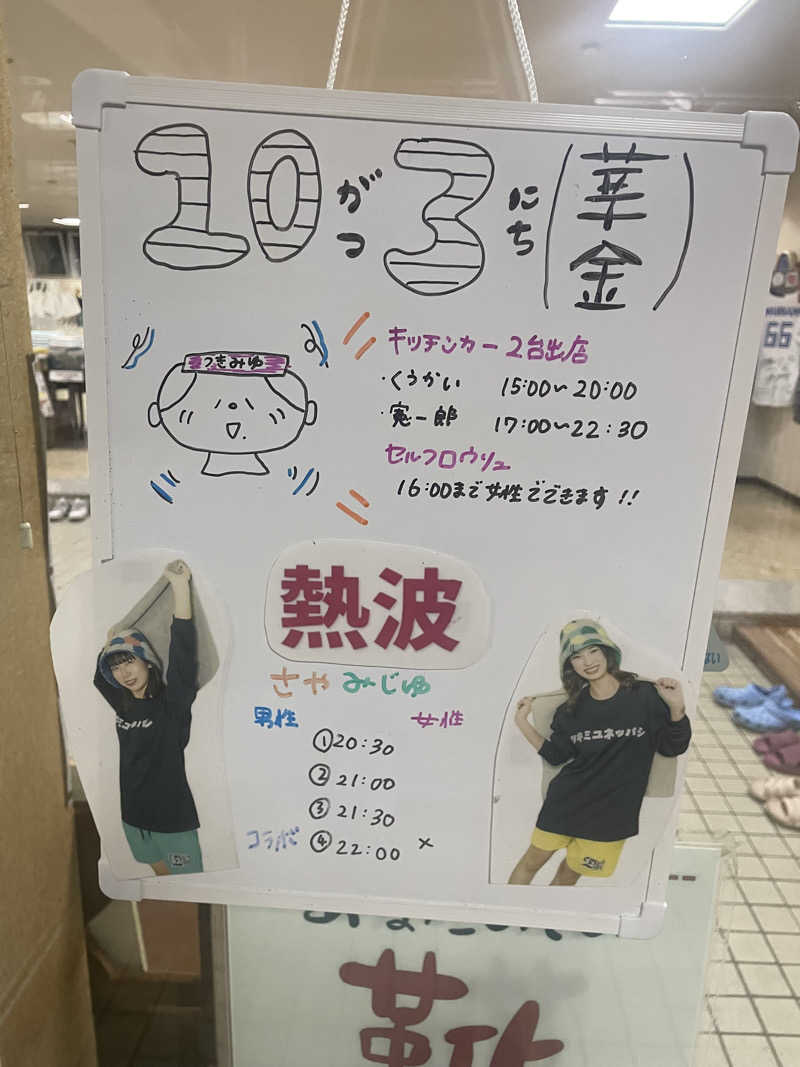 10がつ3にち(華金)
つきみゆ
キッチンカー 2台出店
・くうかい 15:00〜20:00
・寛一郎 17:00〜22:30
セルフロウリュ
16:00まで女性でできます!!
熱波
さや みーじゅ
男性 女性
①20:30
②21:00
③21:30
コラボ ④22:00 ×
ツキミユネッパシ
66
ない
靴